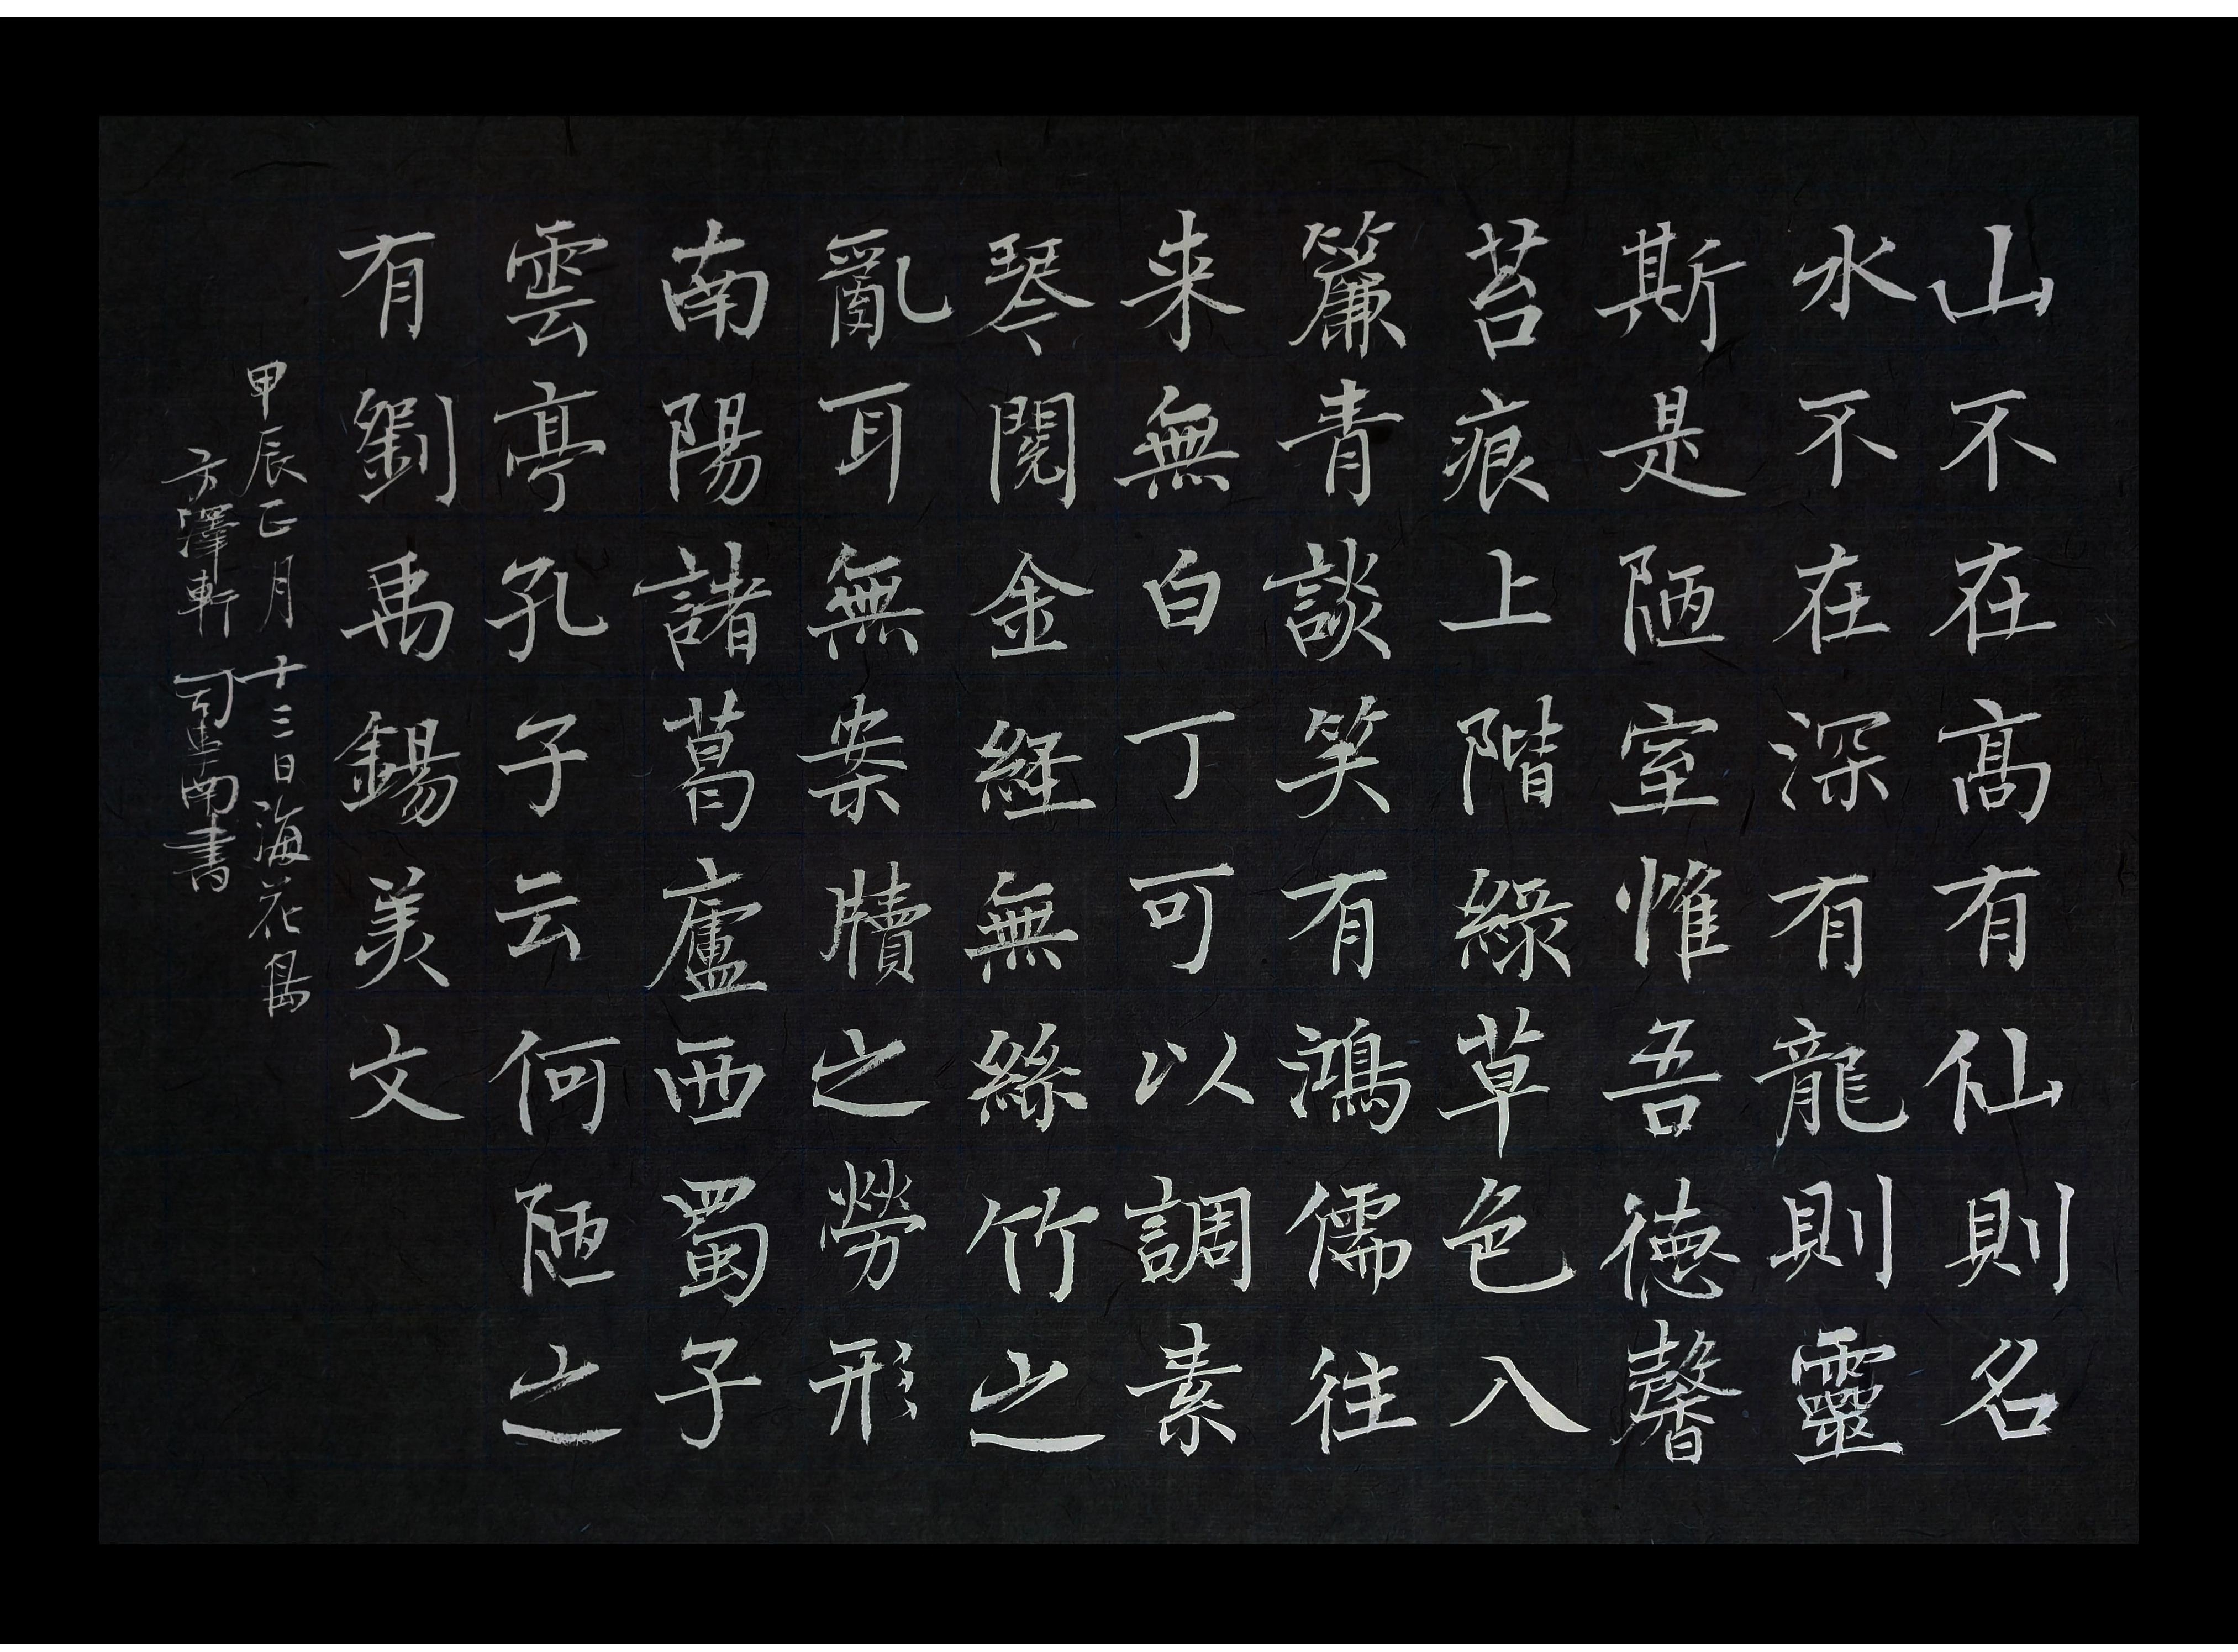 山不在高有仙則名
水不在深有龍則靈
斯是陋室惟吾德馨
苔痕上階綠草色入
簾青談笑有鴻儒往
来無白丁可以調素
琴閱金經無絲竹之
亂耳無案牘之勞形
南陽諸葛廬西蜀子
雲亭孔子云何陋之
有劉禹錫美文
甲辰正月十三日海花島
方澤軒司馬南書